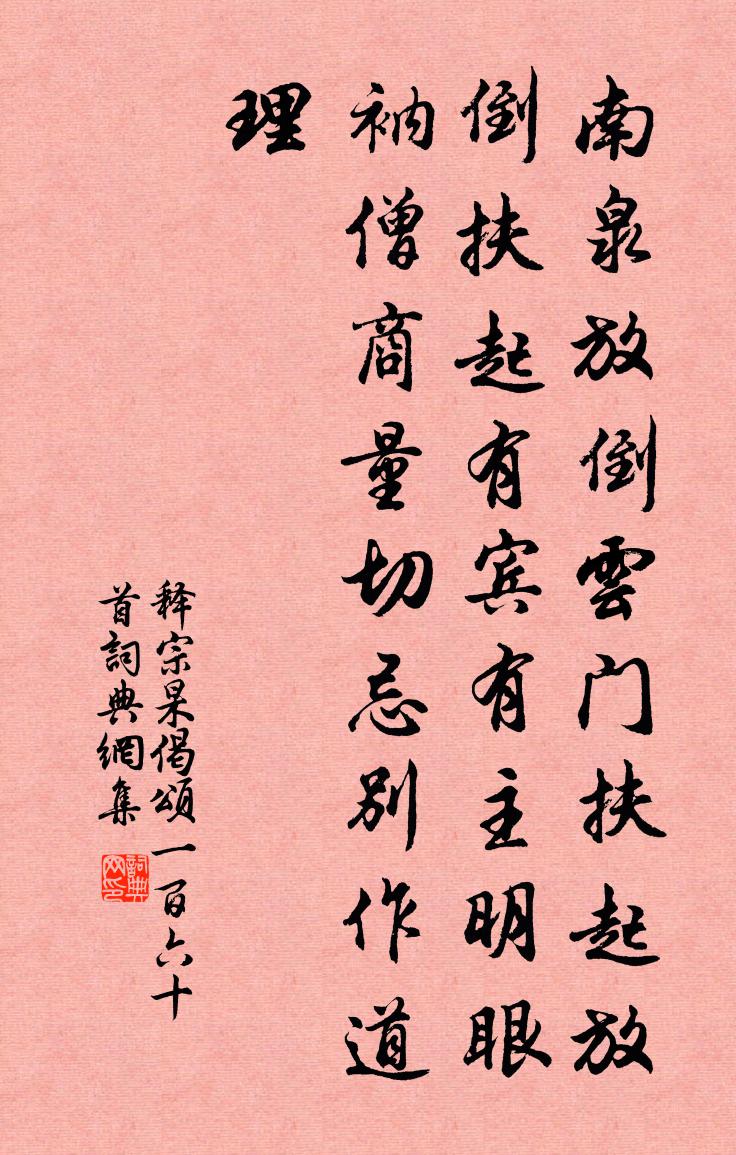 南泉放倒雲门扶起放
倒扶起有宾有主明眼
衲僧商量切忌别作道
理
释宗杲偈頌一百六十
首詞典網集
詞典
网印